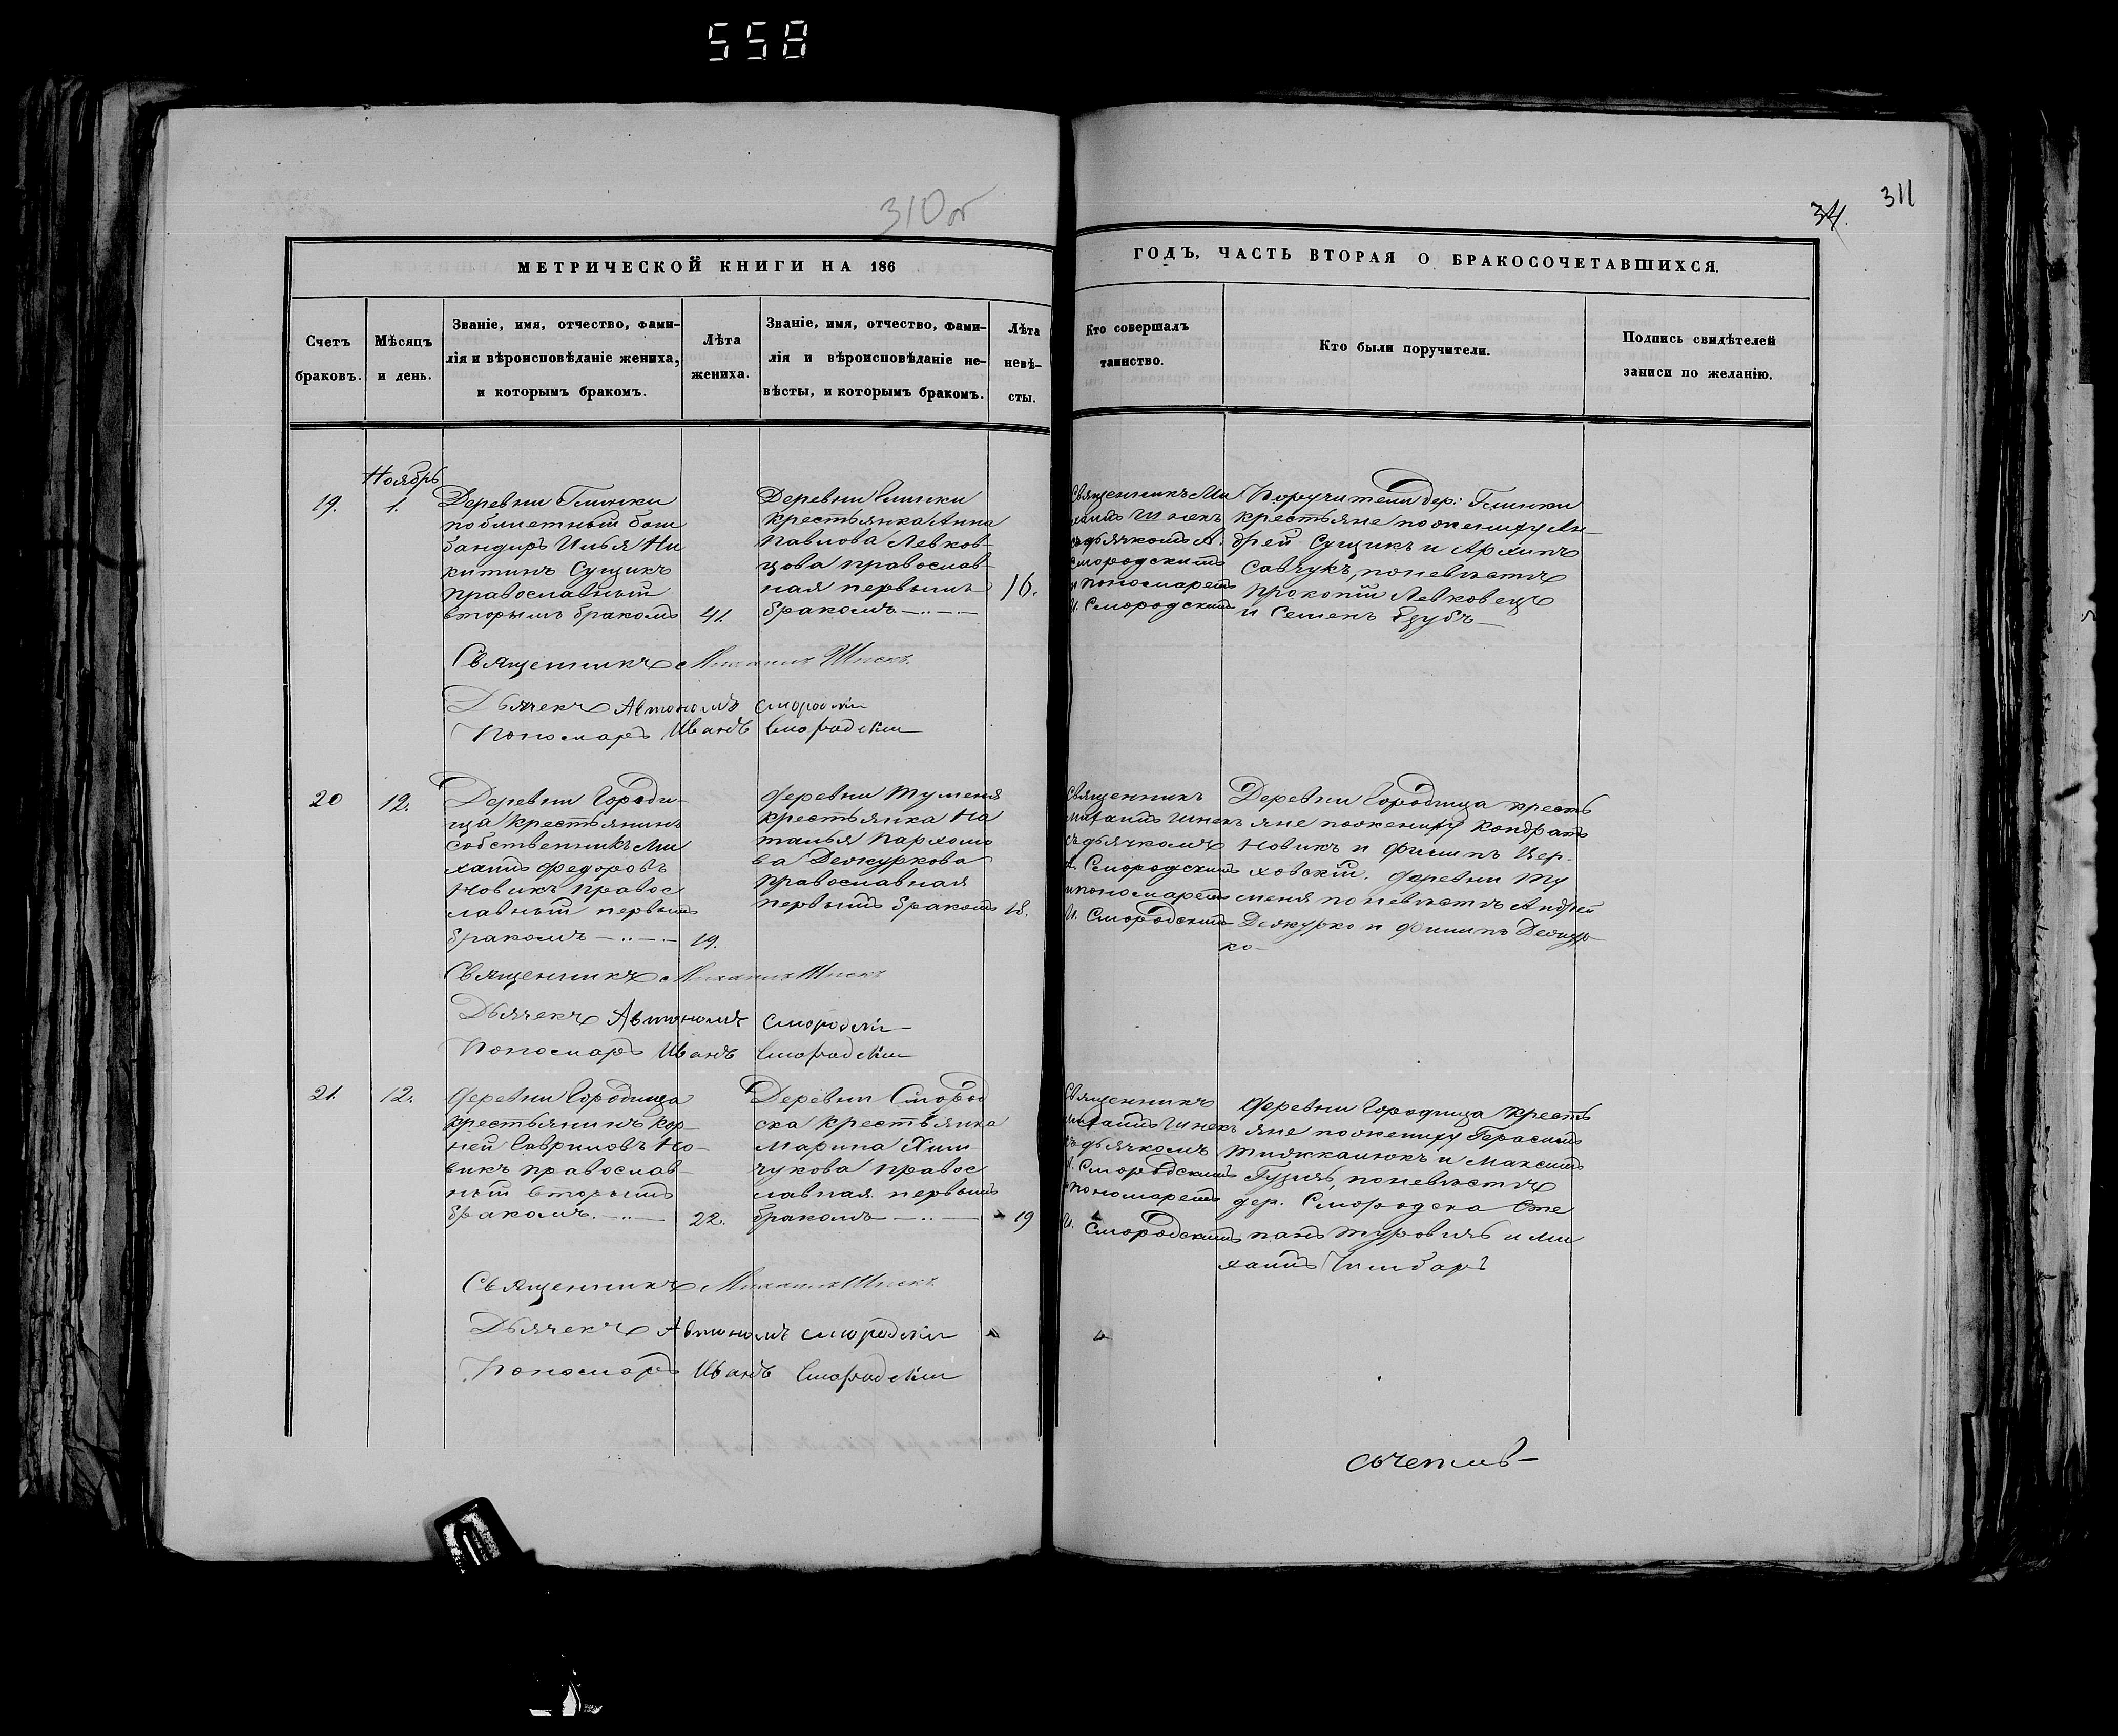 558
310 об
34.
311
МЕТРИЧЕСКОЙ КНИГИ НА 186
ГОДЪ, ЧАСТЬ ВТОРАЯ О БРАКОСОЧЕТАВШИХСЯ.
Счетъ
браковъ.
Мѣсяцъ
и день.
Званіе, имя, отчество, фами-
лія и вѣроисповѣданіе жениха,
и которымъ бракомъ.
Лѣта
жениха.
Званіе, имя, отчество, фами-
лія и вѣроисповѣданіе не-
вѣсты, и которымъ бракомъ.
Лѣта
невѣ-
сты.
Кто совершалъ
таинство.
Кто были поручители.
Подпись свидѣтелей
записи по желанію.
19.
Ноябрь
1.
Деревни Глинки
побилетный бом
бандиръ Илья Ни
китинъ Сущикъ
православный
вторымъ бракомъ
41.
Деревни Глинки
крестьянка Анна
Павлова Левков-
цова православ-
ная первымъ
бракомъ
16.
Священникъ Ми
хаилъ Шнекъ
съ дьячкомъ А.
Смородскимъ
и пономаремъ
И. Смородскимъ
Поручители дер: Глинки
крестьяне по жениху Ан-
дрей Сущикъ и Архипъ
Савчукъ, по невѣстѣ
Прокопій Левковецъ
и Семенъ
Священникъ Михаилъ Шнекъ
Дьячекъ Автономъ Смородскій
Пономарь Иванъ Смородскій
20
12.
Деревни Городи-
ща крестьянинъ
собственникъ Ми
хаилъ Федоровъ
Новикъ правос
лавный первымъ
бракомъ
19.
Деревни Туменя
крестьянка На
талья Пархомо
ва Дежуркова
православная
первымъ бракомъ
18.
Священникъ
Михаилъ Шнекъ
съ дьячкомъ
А. Смородскимъ
и пономаремъ
И. Смородскимъ
Деревни Городища кресть
яне по жениху Кондратъ
Новикъ и Филипъ Вер-
ховскій. Деревни Ту
меня по невѣстѣ Андрей
Дежурко и Филипъ Дежур-
ко
Священникъ Михаилъ Шнекъ
Дьячекъ Автономъ Смородскій
Пономарь Иванъ Смородскій
21.
12.
Деревни Городища
крестьянинъ Кор
ней Гавриловъ Но-
викъ православ-
ный вторымъ
бракомъ
22.
Деревни Смород
ска крестьянка
Марина Хим
чукова правос
лавная первымъ
бракомъ
19
Священникъ
Михаилъ Шнекъ
съ дьячкомъ
А. Смородскимъ
и пономаремъ
И. Смородскимъ
Деревни Городища кресть
яне по жениху Герасимъ
и Максимъ
по невѣстѣ
дер. Смородска Сте
панъ Туровичъ и Ми
хаилъ
Священникъ Михаилъ Шнекъ
Дьячекъ Автономъ Смородскій
Пономарь Иванъ Смородскій